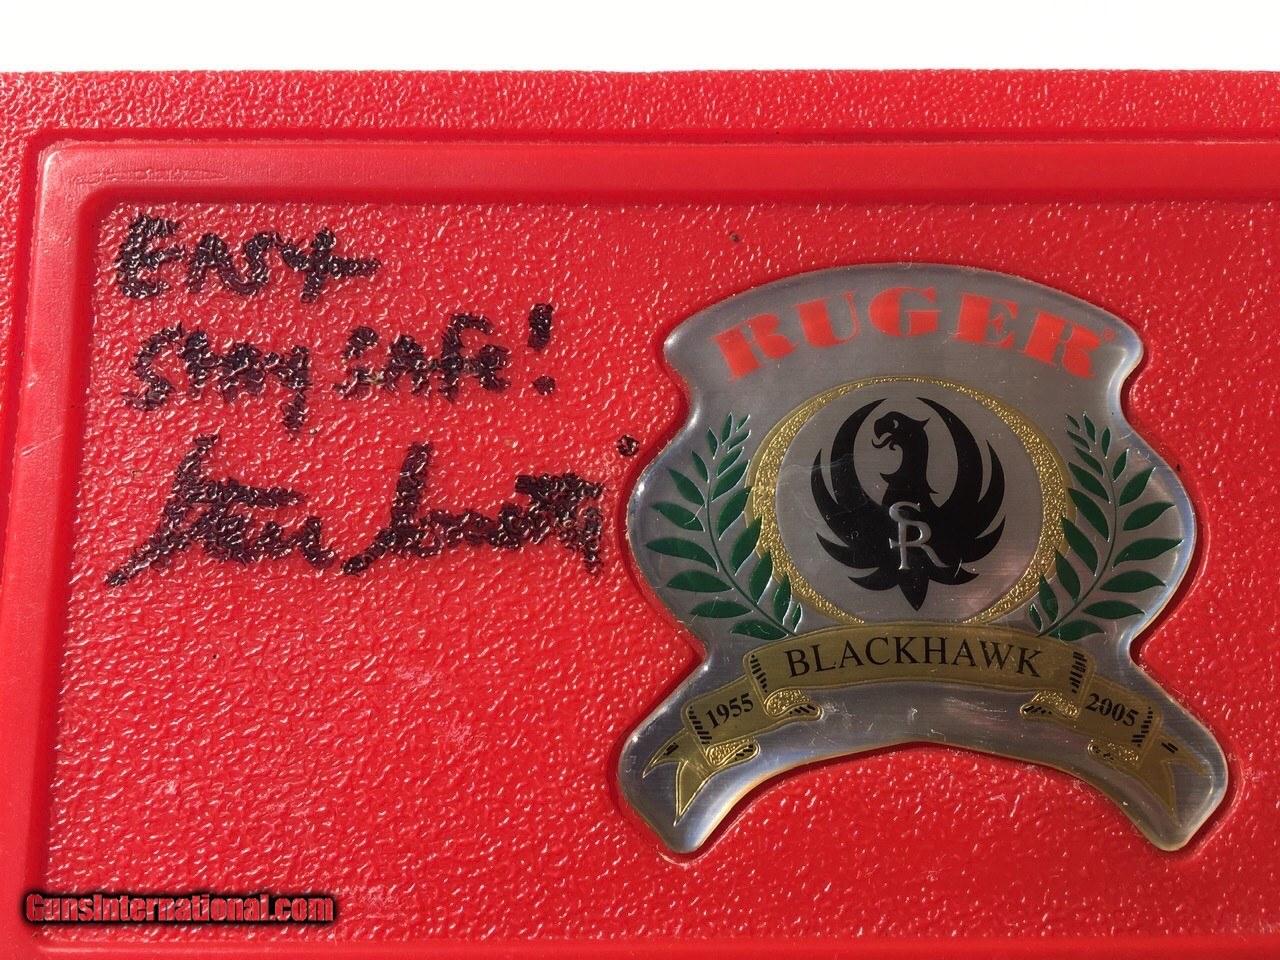 EAST
STAY SAFE!
RUGER®
SR
BLACKHAWK
1955
2005
GunsInternational.com